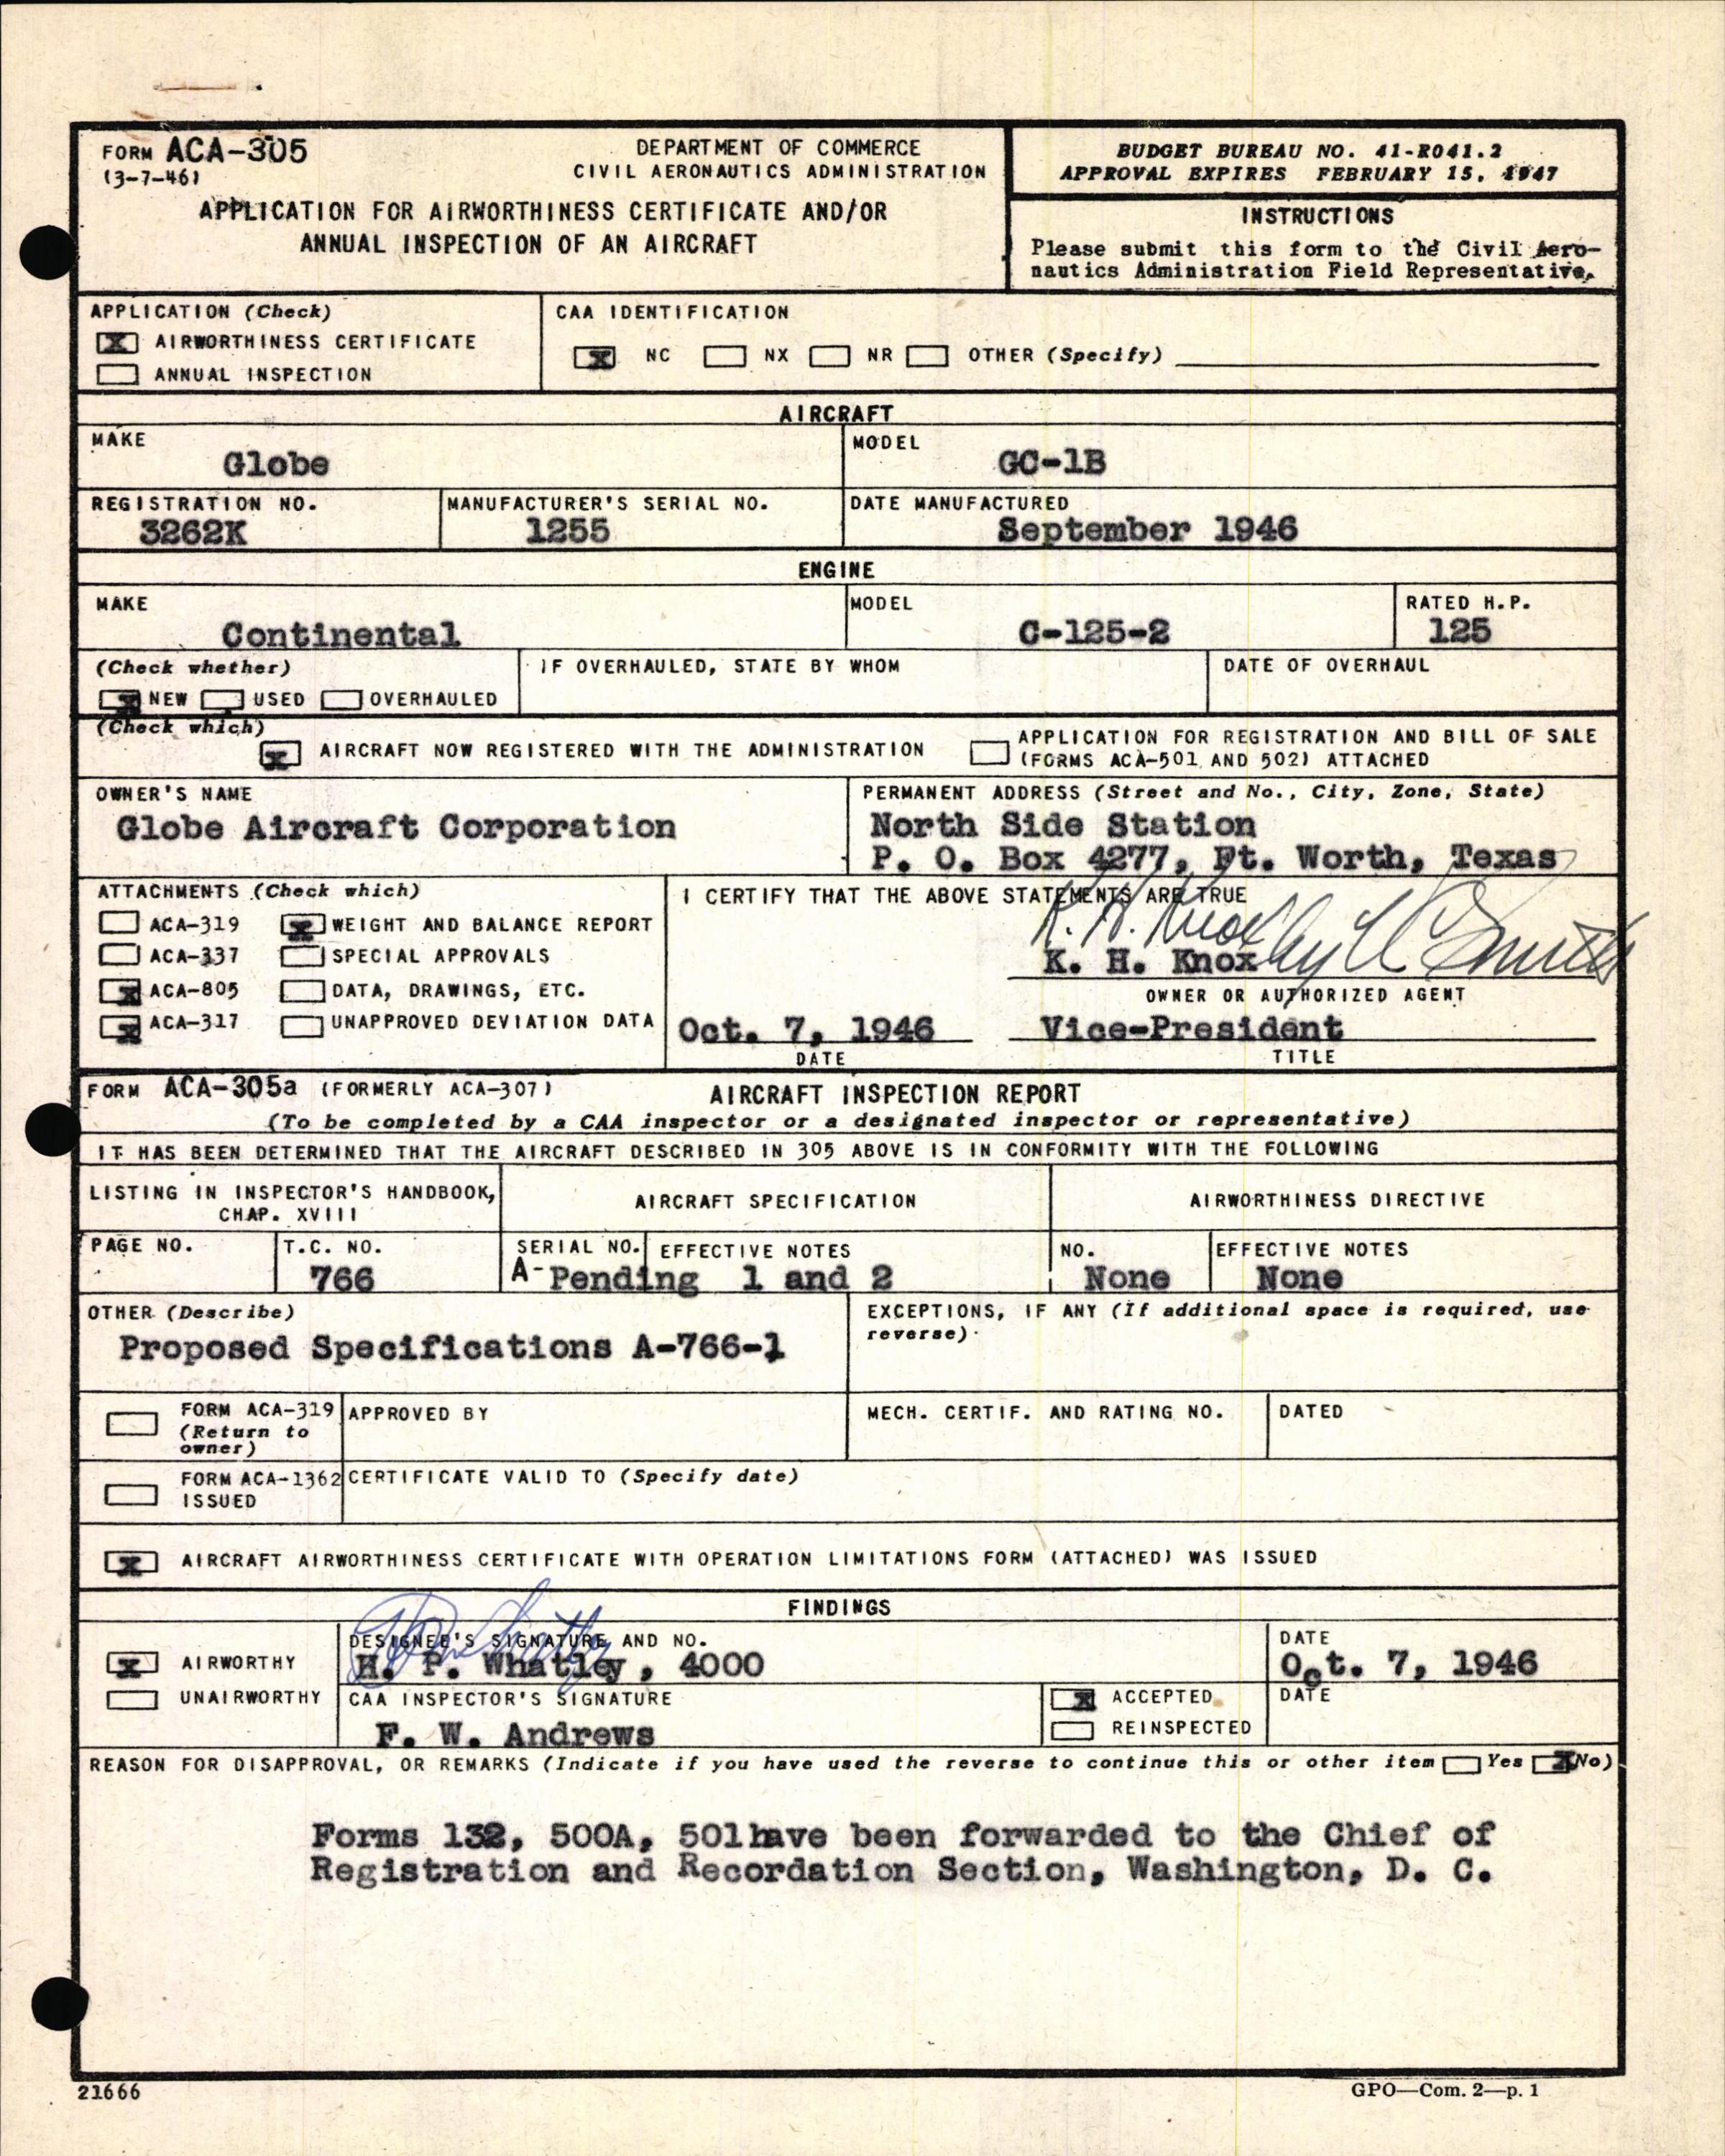 FORM ACA-305
(3-7-46)
DEPARTMENT OF COMMERCE
CIVIL AERONAUTICS ADMINISTRATION
APPLICATION FOR AIRWORTHINESS CERTIFICATE AND/OR
ANNUAL INSPECTION OF AN AIRCRAFT
BUDGET BUREAU NO. 41-R041.2
APPROVAL EXPIRES FEBRUARY 15, 1947
INSTRUCTIONS
Please submit this form to the Civil Aero-
nautics Administration Field Representative.
APPLICATION (Check)
X AIRWORTHINESS CERTIFICATE
ANNUAL INSPECTION
CAA IDENTIFICATION
X NC NX NR OTHER (Specify)
AIRCRAFT
MAKE
Globe
MODEL
GC-1B
REGISTRATION NO.
3262K
MANUFACTURER'S SERIAL NO.
1255
DATE MANUFACTURED
September 1946
ENGINE
MAKE
Continental
MODEL
C-125-2
RATED H.P.
125
(Check whether)
X NEW USED OVERHAULED
IF OVERHAULED, STATE BY WHOM
DATE OF OVERHAUL
(Check which)
X AIRCRAFT NOW REGISTERED WITH THE ADMINISTRATION
APPLICATION FOR REGISTRATION AND BILL OF SALE
(FORMS ACA-501 AND 502) ATTACHED
OWNER'S NAME
Globe Aircraft Corporation
PERMANENT ADDRESS (Street and No., City, Zone, State)
North Side Station
P. O. Box 4277, Ft. Worth, Texas
ATTACHMENTS (Check which)
ACA-319 X WEIGHT AND BALANCE REPORT
ACA-337 SPECIAL APPROVALS
X ACA-805 DATA, DRAWINGS, ETC.
X ACA-317 UNAPPROVED DEVIATION DATA
I CERTIFY THAT THE ABOVE STATEMENTS ARE TRUE
K. H. Knox by Smith
K. H. Knox
OWNER OR AUTHORIZED AGENT
Oct. 7, 1946 Vice-President
DATE TITLE
FORM ACA-305a (FORMERLY ACA-307) AIRCRAFT INSPECTION REPORT
(To be completed by a CAA inspector or a designated inspector or representative)
IT HAS BEEN DETERMINED THAT THE AIRCRAFT DESCRIBED IN 305 ABOVE IS IN CONFORMITY WITH THE FOLLOWING
LISTING IN INSPECTOR'S HANDBOOK,
CHAP. XVIII
AIRCRAFT SPECIFICATION
AIRWORTHINESS DIRECTIVE
PAGE NO.
T.C. NO.
766
SERIAL NO. EFFECTIVE NOTES
A- Pending 1 and 2
NO.
None
EFFECTIVE NOTES
None
OTHER (Describe)
Proposed Specifications A-766-1
EXCEPTIONS, IF ANY (If additional space is required, use
reverse)
FORM ACA-319
(Return to
owner)
APPROVED BY
MECH. CERTIF. AND RATING NO.
DATED
FORM ACA-1362
ISSUED
CERTIFICATE VALID TO (Specify date)
X AIRCRAFT AIRWORTHINESS CERTIFICATE WITH OPERATION LIMITATIONS FORM (ATTACHED) WAS ISSUED
FINDINGS
X AIRWORTHY
UNAIRWORTHY
DESIGNEE'S SIGNATURE AND NO.
H. P. Whatley, 4000
DATE
Oct. 7, 1946
CAA INSPECTOR'S SIGNATURE
F. W. Andrews
X ACCEPTED
REINSPECTED
DATE
REASON FOR DISAPPROVAL, OR REMARKS (Indicate if you have used the reverse to continue this or other item Yes X No)
Forms 132, 500A, 501have been forwarded to the Chief of
Registration and Recordation Section, Washington, D. C.
21666
GPO—Com. 2—p. 1